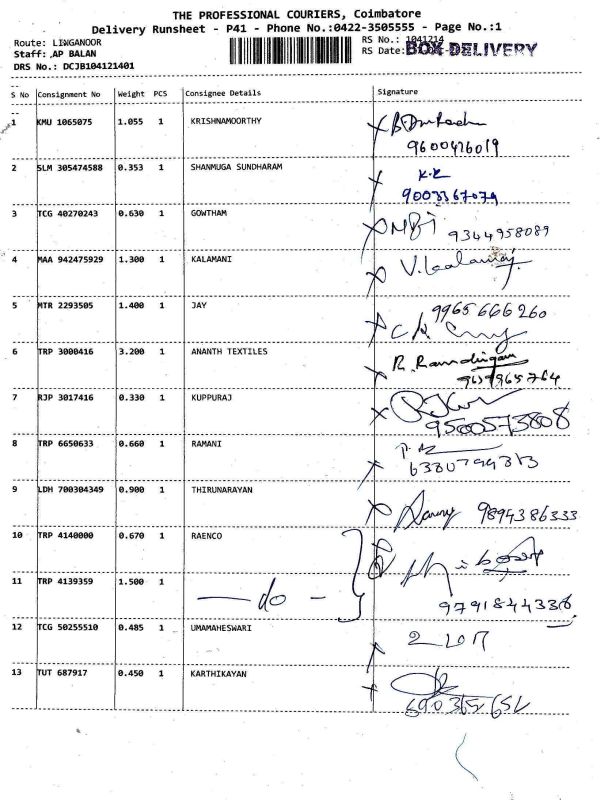 THE PROFESSIONAL COURIERS, Coimbatore
Delivery Runsheet - P41 - Phone No.:0422-3505555 - Page No.:1
Route: LINGANOOR RS No.: 1041214
Staff: AP BALAN RS Date: BOX DELIVERY
DRS No.: DCJB104121401
S No Consignment No Weight PCS Consignee Details Signature
1 KMU 1065075 1.055 1 KRISHNAMOORTHY
9600426019
2 SLM 305474588 0.353 1 SHANMUGA SUNDHARAM K.R
9003367079
3 TCG 40270243 0.630 1 GOWTHAM
9344958089
4 MAA 942475929 1.300 1 KALAMANI V. Kalamaj
5 MTR 2293505 1.400 1 JAY 9965666260
6 TRP 3000416 3.200 1 ANANTH TEXTILES R. Ramalingam
7 RJP 3017416 0.330 1 KUPPURAJ
9500573808
8 TRP 6650633 0.660 1 RAMANI
9 LDH 700304349 0.900 1 THIRUNARAYAN 9894386333
10 TRP 4140000 0.670 1 RAENCO
11 TRP 4139359 1.500 1 — do —
9791844338
12 TCG 50255510 0.485 1 UMAMAHESWARI உமா
13 TUT 687917 0.450 1 KARTHIKAYAN